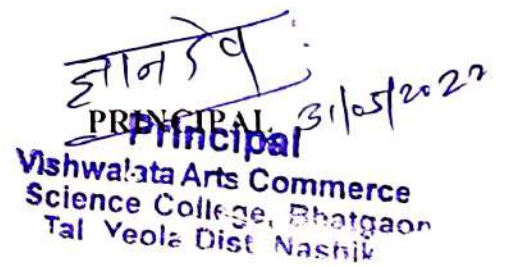 ज्ञानदेव
PRINCIPAL 31/05/2022
Principal
Vishwalata Arts Commerce
Science College, Bhatgaon
Tal Yeola Dist Nashik